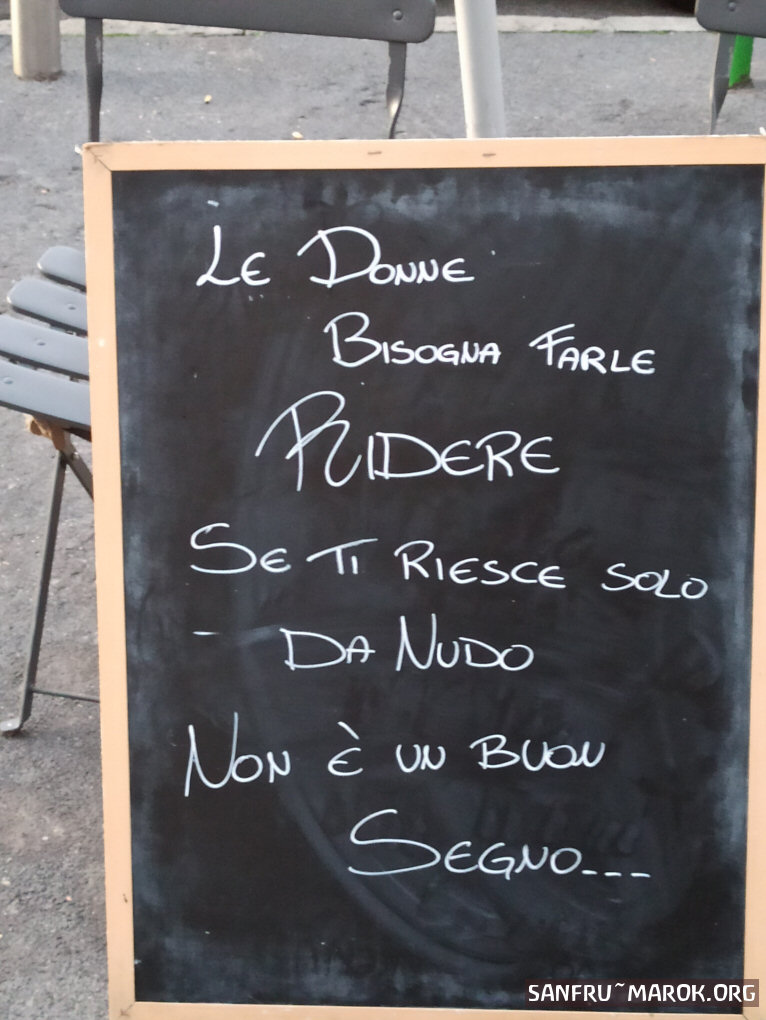 Le Donne
Bisogna Farle
Ridere
Se Ti riesce solo
Da Nudo
Non è un buon
Segno...
SANFRU~MAROK.ORG